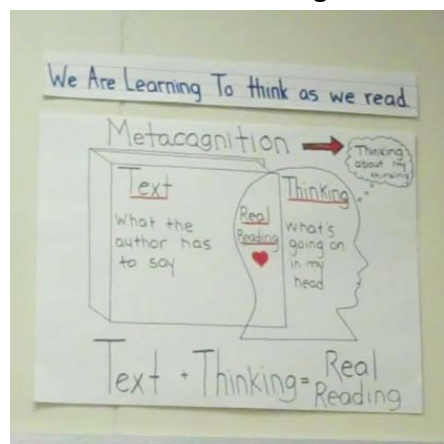 We Are Learning To think as we read.
Metacognition
Thinking
about my
thinking
Text
What the
author has
to say
Real
Reading
Thinking
what's
going on
in my
head
Text + Thinking = Real
Reading